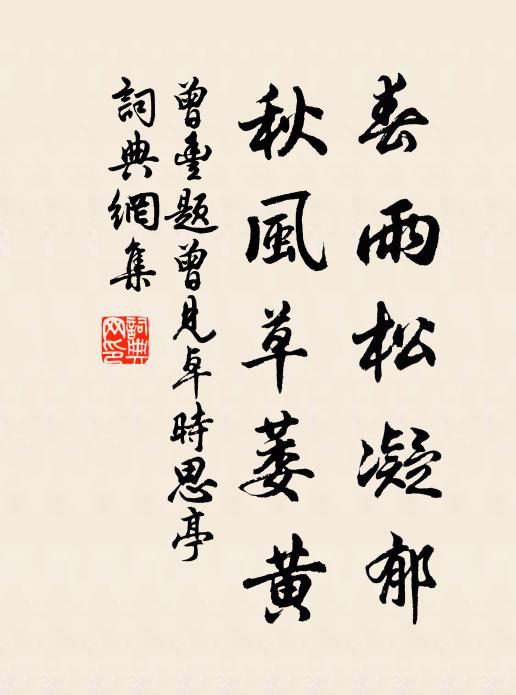 春雨松凝郁
秋風草萎黄
曾豐題曾見卓時思亭
詞典網集
詞典网印